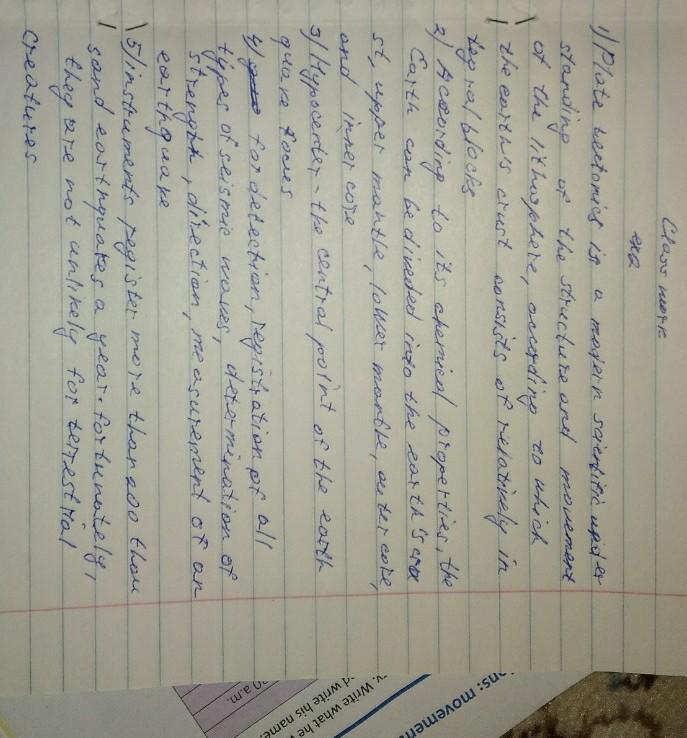 Class work
1) Plate tectonics is a modern scientific under
standing of the structure and movement
of the lithosphere, according to which
the earth's crust consists of relatively in
tegral blocks
2) According to its chemical properties, the
Earth can be divided into the earth's cru
st, upper mantle, lower mantle, outer core,
and inner core
3) Hypocenter - the central point of the earth
quake focus
4) for detection, registration of all
types of seismic waves, determination of
strength, direction, measurement of an
earthquake
5) instruments register more than 200 thou
sand earthquakes a year. fortunately,
they are not unlikely for terrestrial
creatures
ons: movemen
y. Write what he
d write his name
0 a.m.